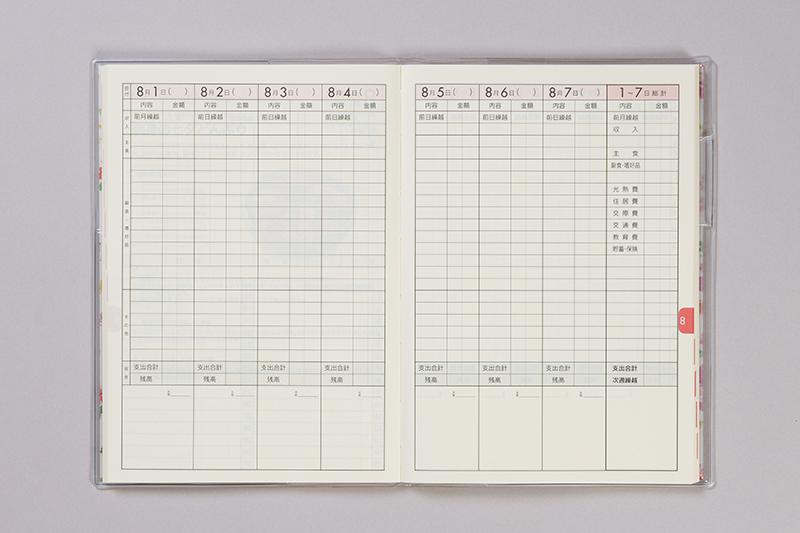 日付 8月1日( ) 8月2日( ) 8月3日( ) 8月4日( )
内容 金額 内容 金額 内容 金額 内容 金額
収入 前月繰越 前日繰越 前日繰越 前日繰越
主食
副食・嗜好品
支出合計 支出合計 支出合計 支出合計
残高 残高 残高 残高
8月5日( ) 8月6日( ) 8月7日( ) 1~7日総計
内容 金額 内容 金額 内容 金額 内容 金額
前日繰越 前日繰越 前日繰越 前月繰越
収入
主食
副食・嗜好品
光熱費
住居費
交際費
交通費
教育費
貯蓄・保険
支出合計 支出合計 支出合計 支出合計
残高 残高 残高 次週繰越
8